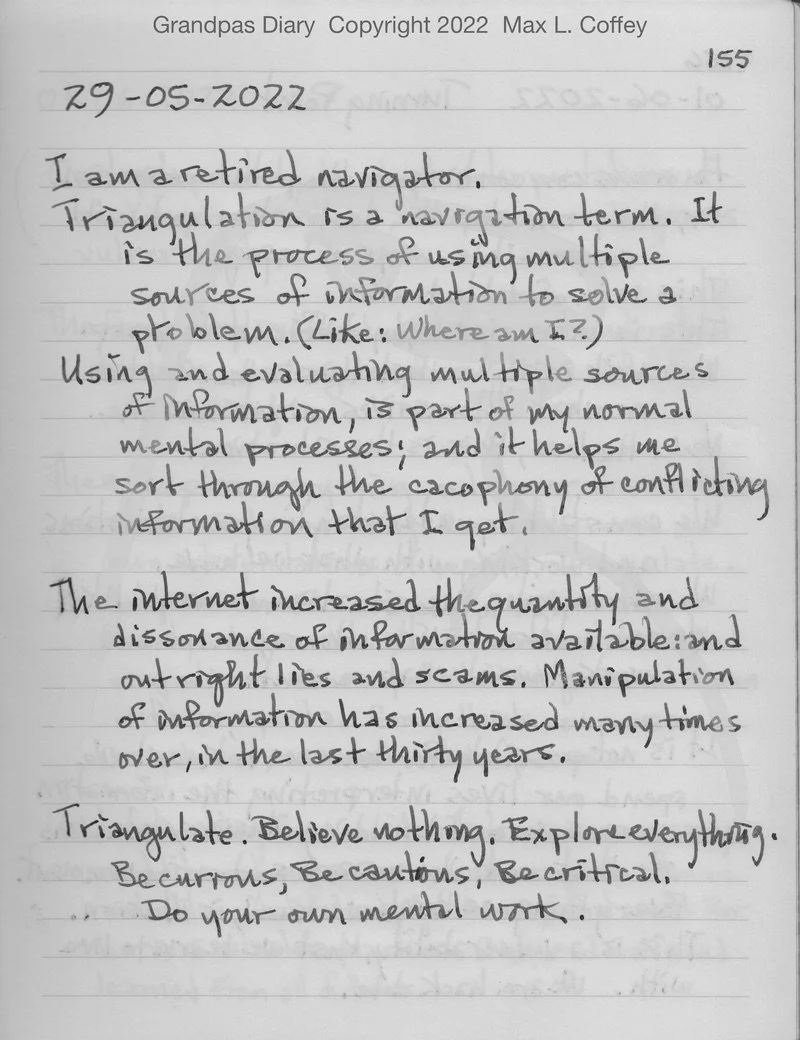 Grandpas Diary Copyright 2022 Max L. Coffey
155
29-05-2022
I am a retired navigator.
Triangulation is a navigation term. It
is the process of using multiple
sources of information to solve a
problem. (Like: Where am I?)
Using and evaluating multiple sources
of information, is part of my normal
mental processes; and it helps me
sort through the cacophony of conflicting
information that I get.
The internet increased the quantity and
dissonance of information available: and
outright lies and scams. Manipulation
of information has increased many times
over, in the last thirty years.
Triangulate. Believe nothing. Explore everything.
Be curious, Be cautious, Be critical.
Do your own mental work.